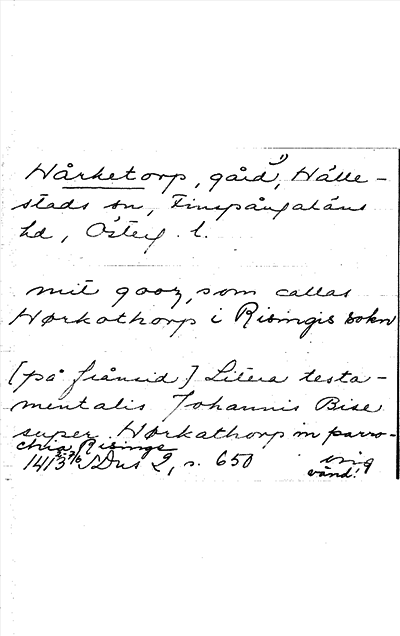 Hårketorp, gård 1), Hälle-
stads sn, Finspångaläns
hd, Österg. l.
mit gooz, som callas
Hørkathorp i Risingis sokn
[på frånsid.] Litera testa-
mentalis Johannis Bise
super Hørkathorp in parro-
chia Risinge
1413 SDns 2, s. 650 orig
vänd!